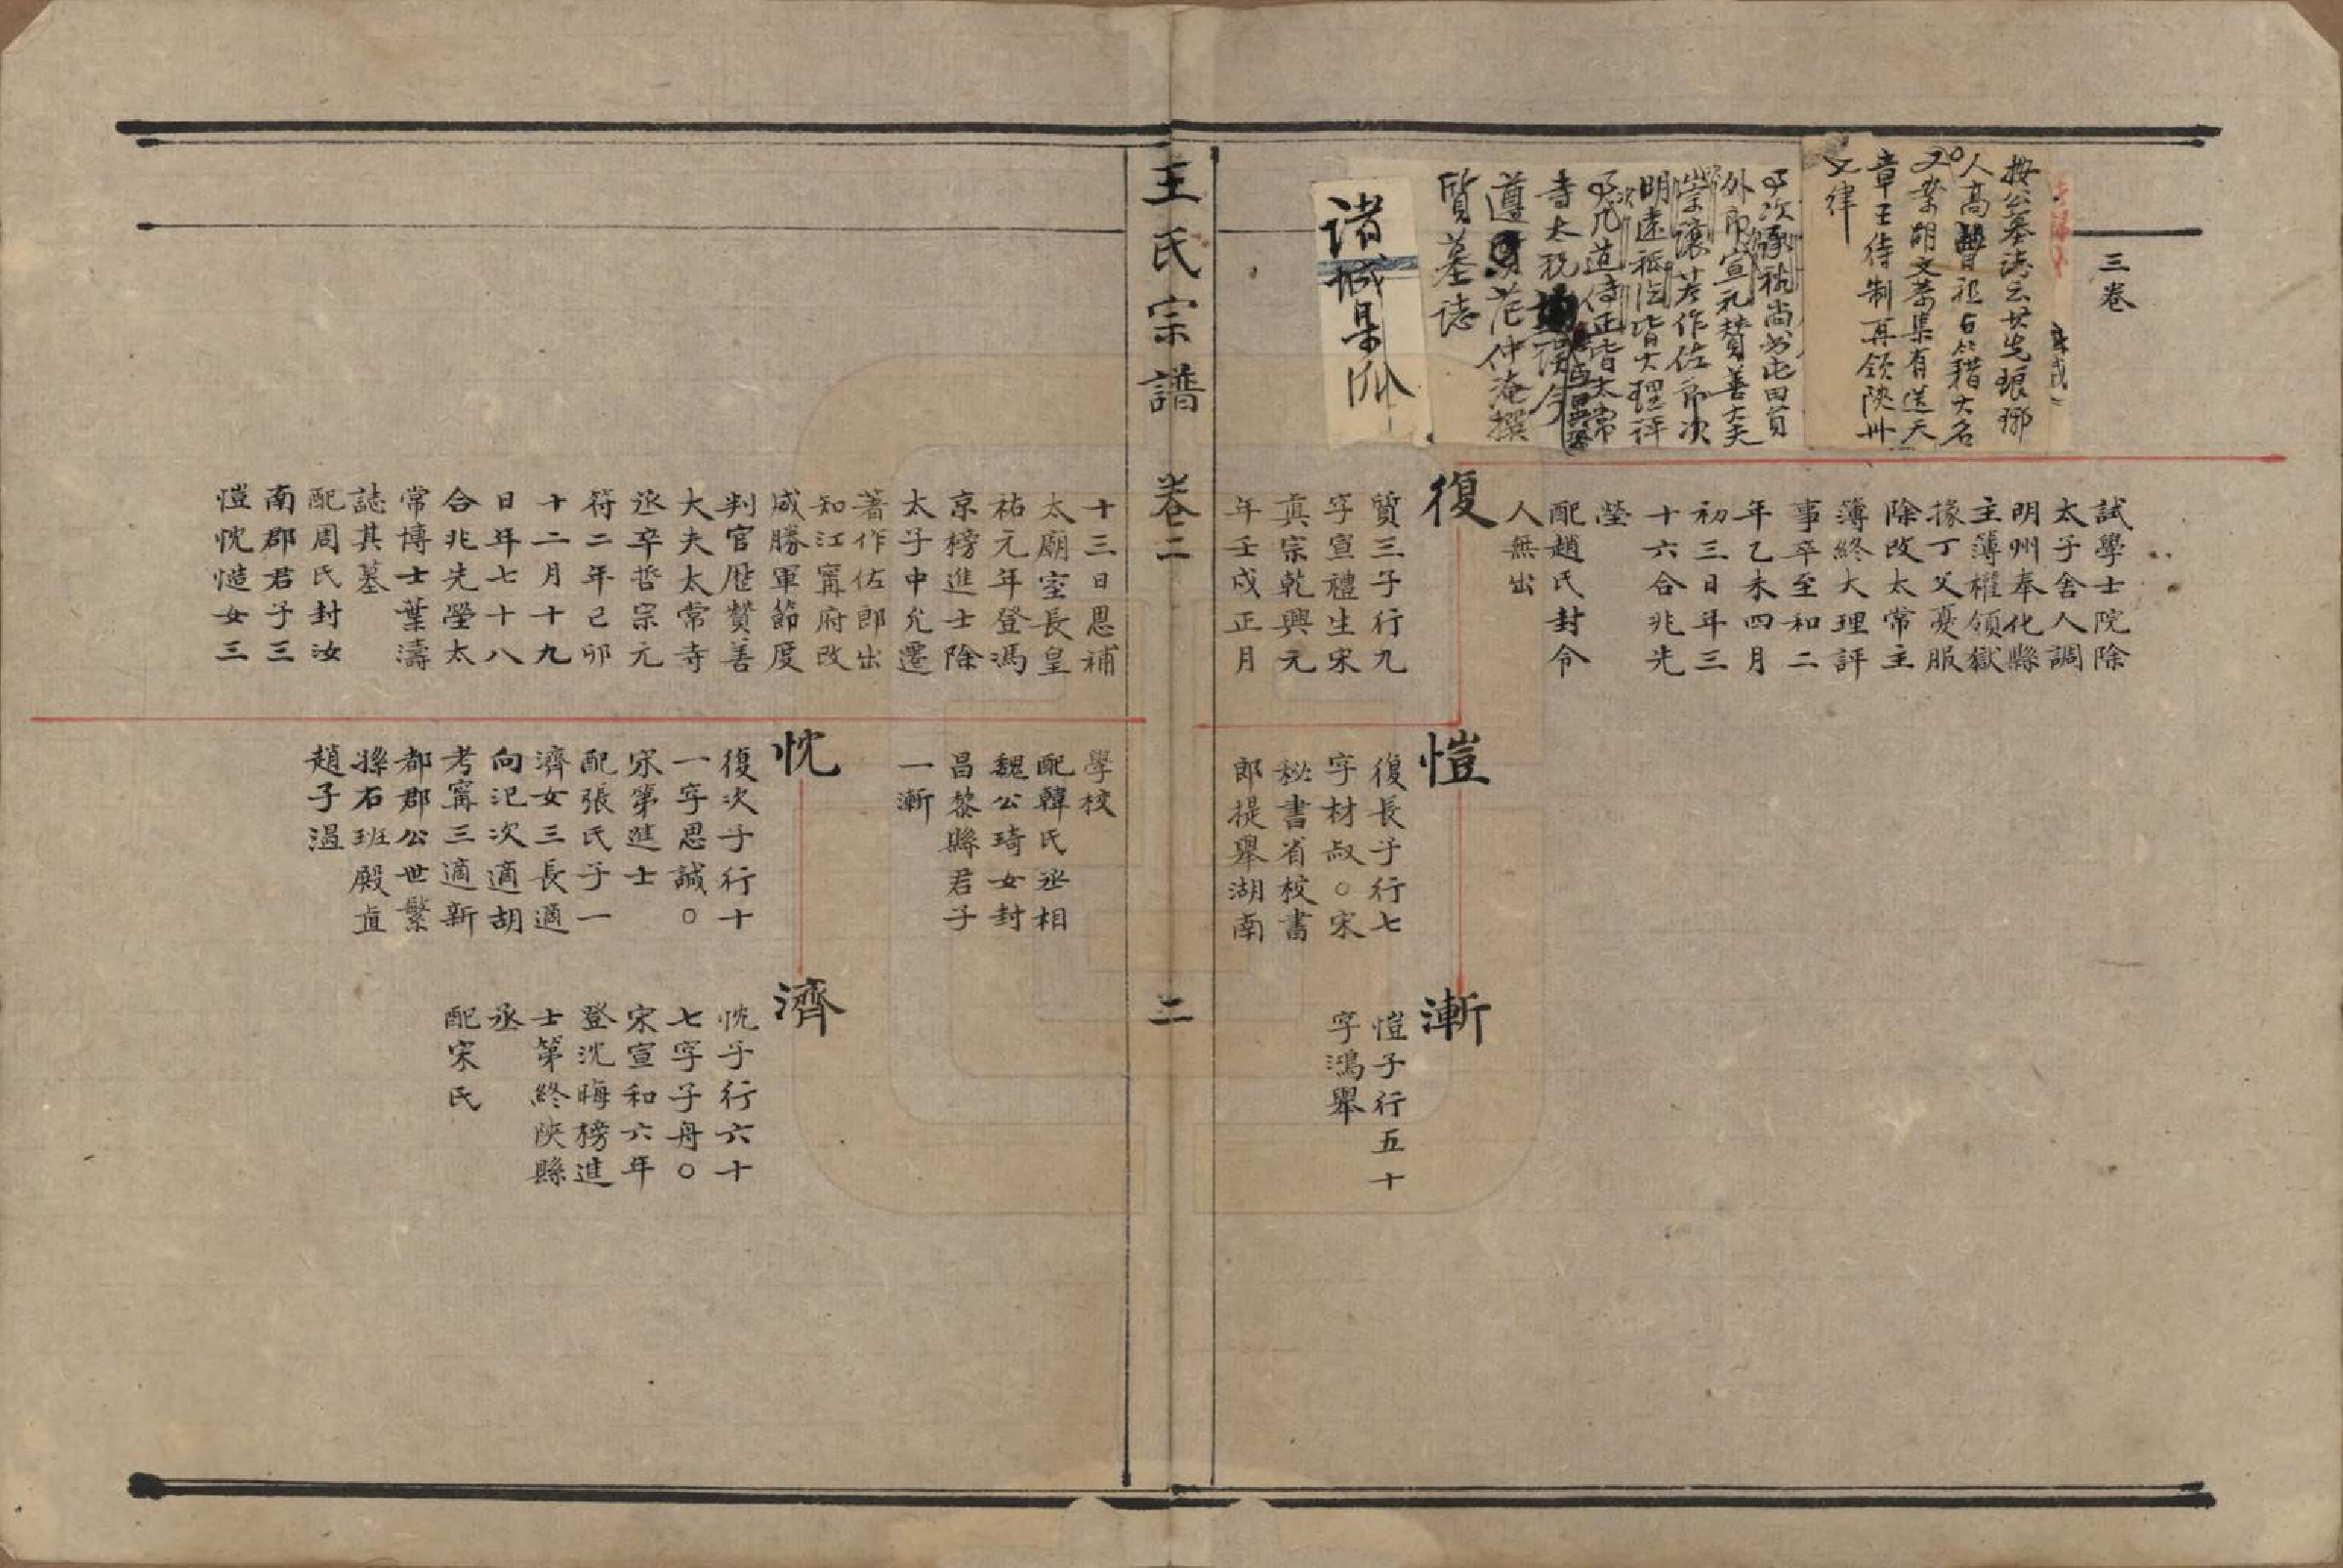 三卷
按公墓誌云其先琅琊
人高曾祖占籍大名
又案胡文恭集有送天
章王待制再領陝州
文律
子次承祐尚書屯田員
外郎宣元贊善大夫
崇讓著作佐郎次
明遠秪法皆大理評
事凡道侍正皆太常
寺太祝
遵明范仲淹撰
質墓誌
諸城集
試學士院除
太子舍人調
明州奉化縣
主薄權領獄
掾丁父憂服
除改太常主
薄終大理評
事卒至和二
年乙未四月
初三日年三
十六合兆先
塋
配趙氏封令
人無出
復
質三子行九
字宣禮生宋
真宗乾興元
年壬戌正月
愷
復長子行七
字材叔○宋
秘書省校書
郎提舉湖南
漸
愷子行五十
字鴻舉
王氏宗譜
卷二
二
十三日恩補
太廟室長皇
祐元年登馮
京榜進士除
太子中允遷
著作佐郎出
知江寧府改
咸勝軍節度
判官歷贊善
大夫太常寺
丞卒哲宗元
符二年己卯
十二月十九
日年七十八
合兆先塋太
常博士葉濤
誌其墓
配周氏封汝
南郡君子三
愷忱慥女三
學校
配韓氏丞相
魏公琦女封
昌黎縣君子
一漸
忱
復次子行十
一字思誠○
宋第進士
配張氏子一
濟女三長適
向汜次適胡
考甯三適新
都郡公世繁
孫右班殿直
趙子溫
濟
忱子行六十
七字子舟○
宋宣和六年
登沈晦榜進
士第終陝縣
丞
配宋氏